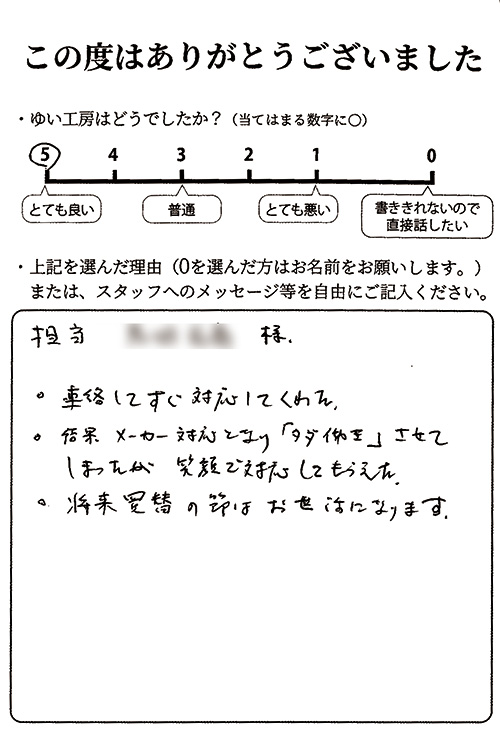 この度はありがとうございました
・ゆい工房はどうでしたか？（当てはまる数字に〇）
5 4 3 2 1 0
とても良い 普通 とても悪い 書ききれないので
直接話したい
・上記を選んだ理由（0を選んだ方はお名前をお願いします。）
または、スタッフへのメッセージ等を自由にご記入ください。
担当 様.
。連絡してすぐ対応してくれた.
。結果 メーカー対応となり「タダ働き」させて
しまったが 笑顔で対応してもらえた.
。将来買替の節はお世話になります.